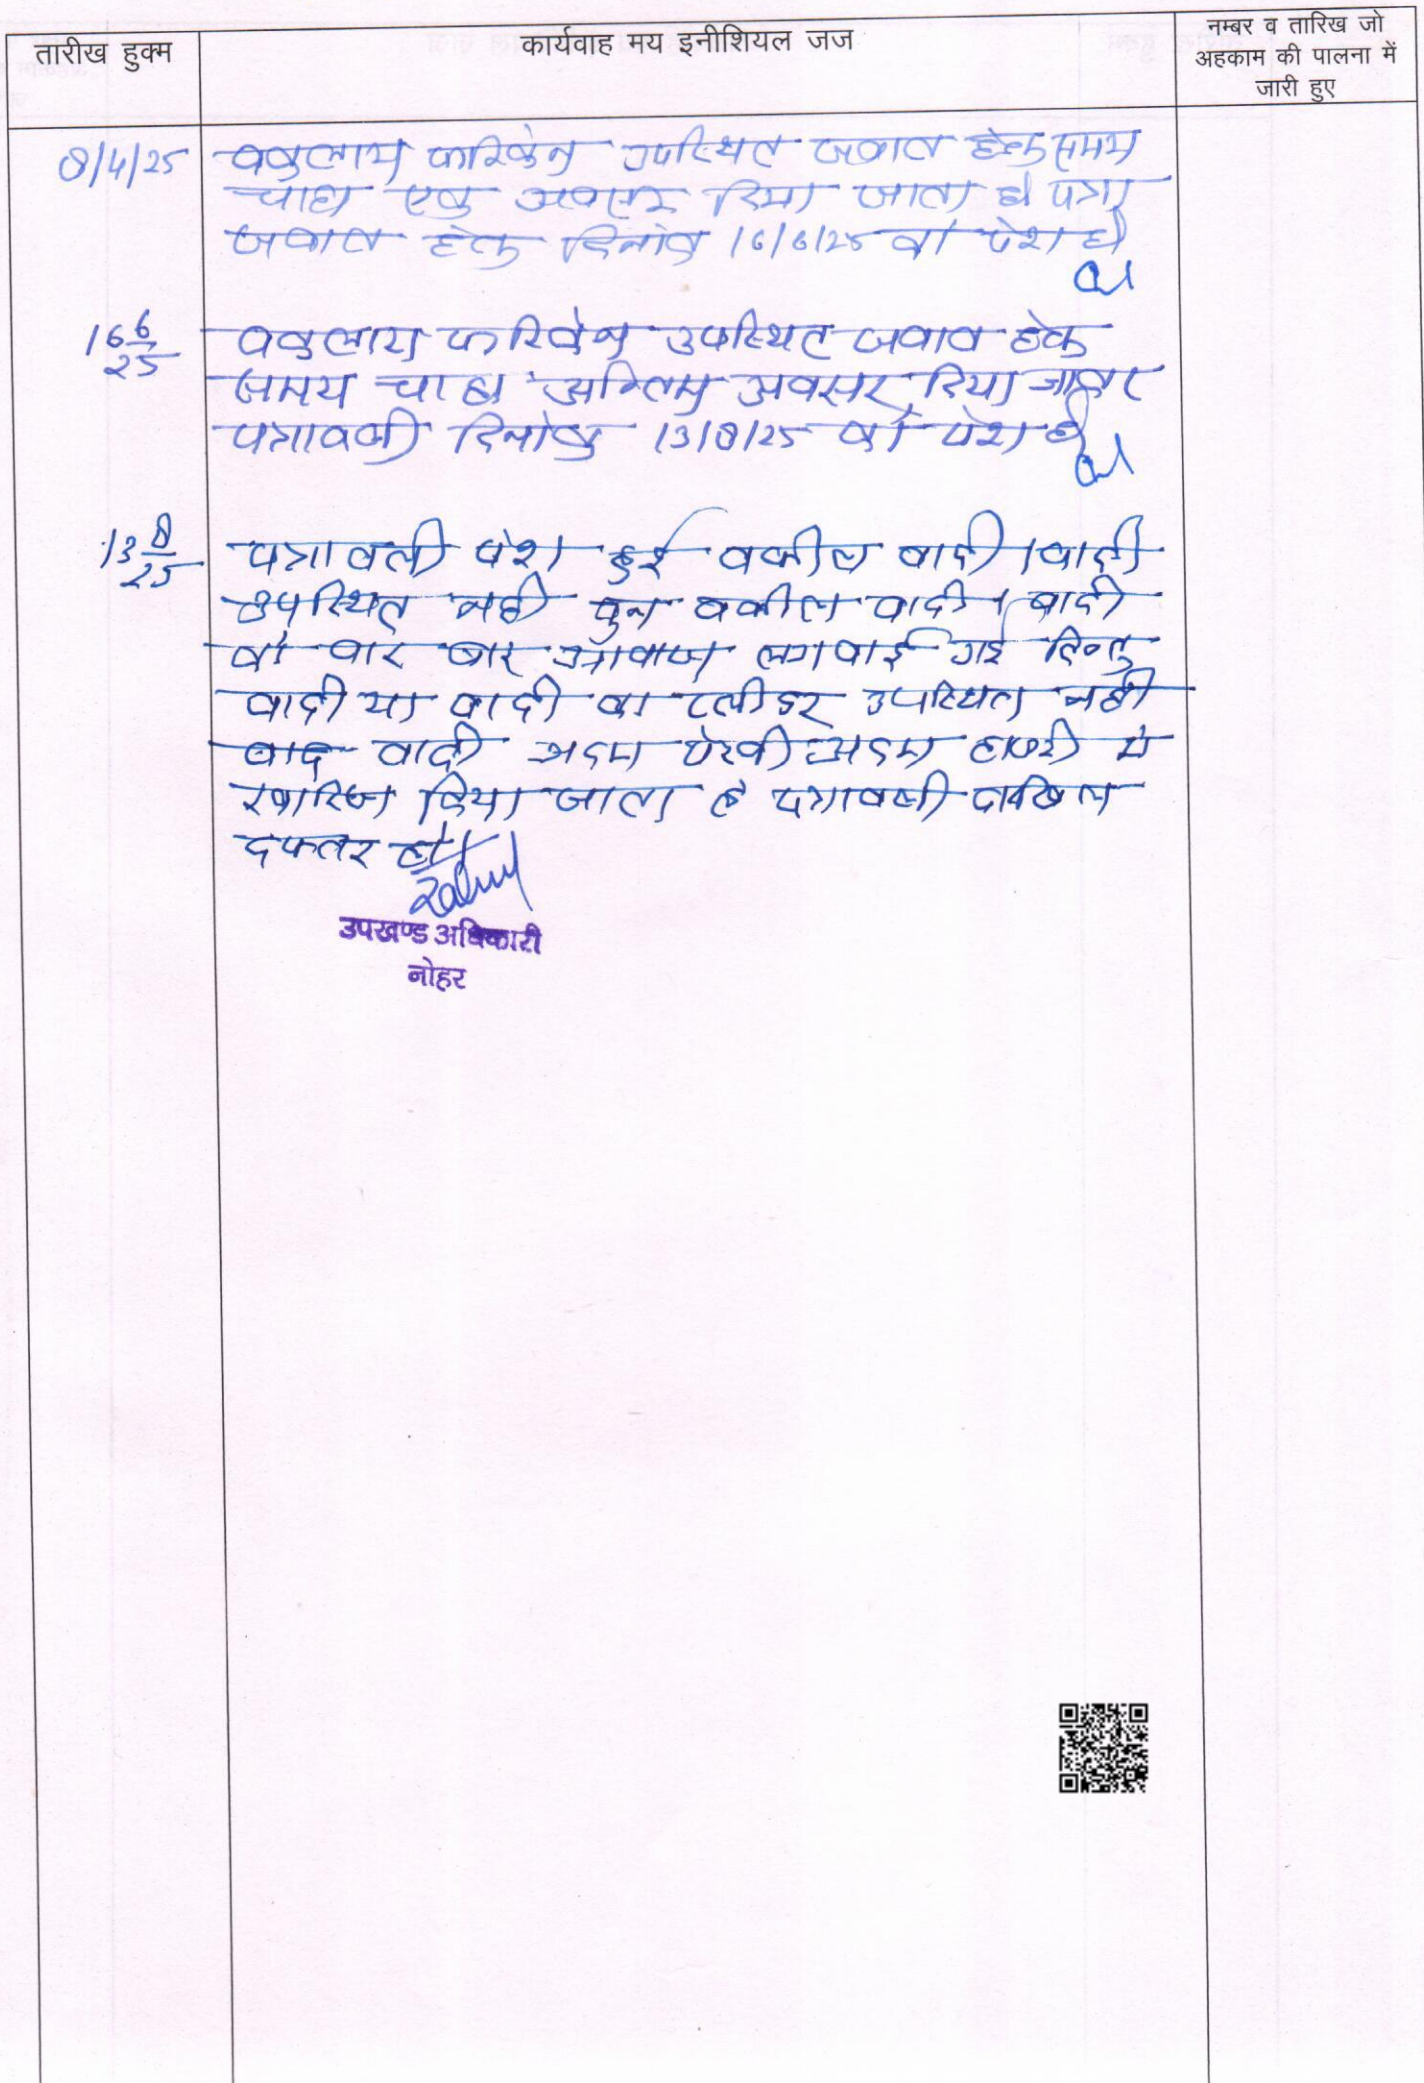 तारीख हुक्म
कार्यवाह मय इनीशियल जज
नम्बर व तारिख जो
अहकाम की पालना में
जारी हुए
8/4/25
वकुलाय फरिकेन उपस्थित जवाब हेतु समय
चाहा एक अवसर दिया जाता है पत्रा
जवाब हेतु दिनांक 16/6/25 को पेश हो
16 6/25
वकुलाय फरिकेन उपस्थित जवाब हेतु
समय चाहा अन्तिम अवसर दिया जाकर
पत्रावली दिनांक 13/8/25 को पेश हो
13 8/25
पत्रावली पेश हुई वकील वादी / वादी
उपस्थित नही पुन वकील वादी / वादी
को बार बार आवाज लगवाई गई किन्तु
वादी या वादी का प्लीडर उपस्थित नही
वाद वादी अदम पेरवी अदम हाजरी मे
खारिज किया जाता है पत्रावली दाखिल
दफ्तर हो
उपखण्ड अधिकारी
नोहर